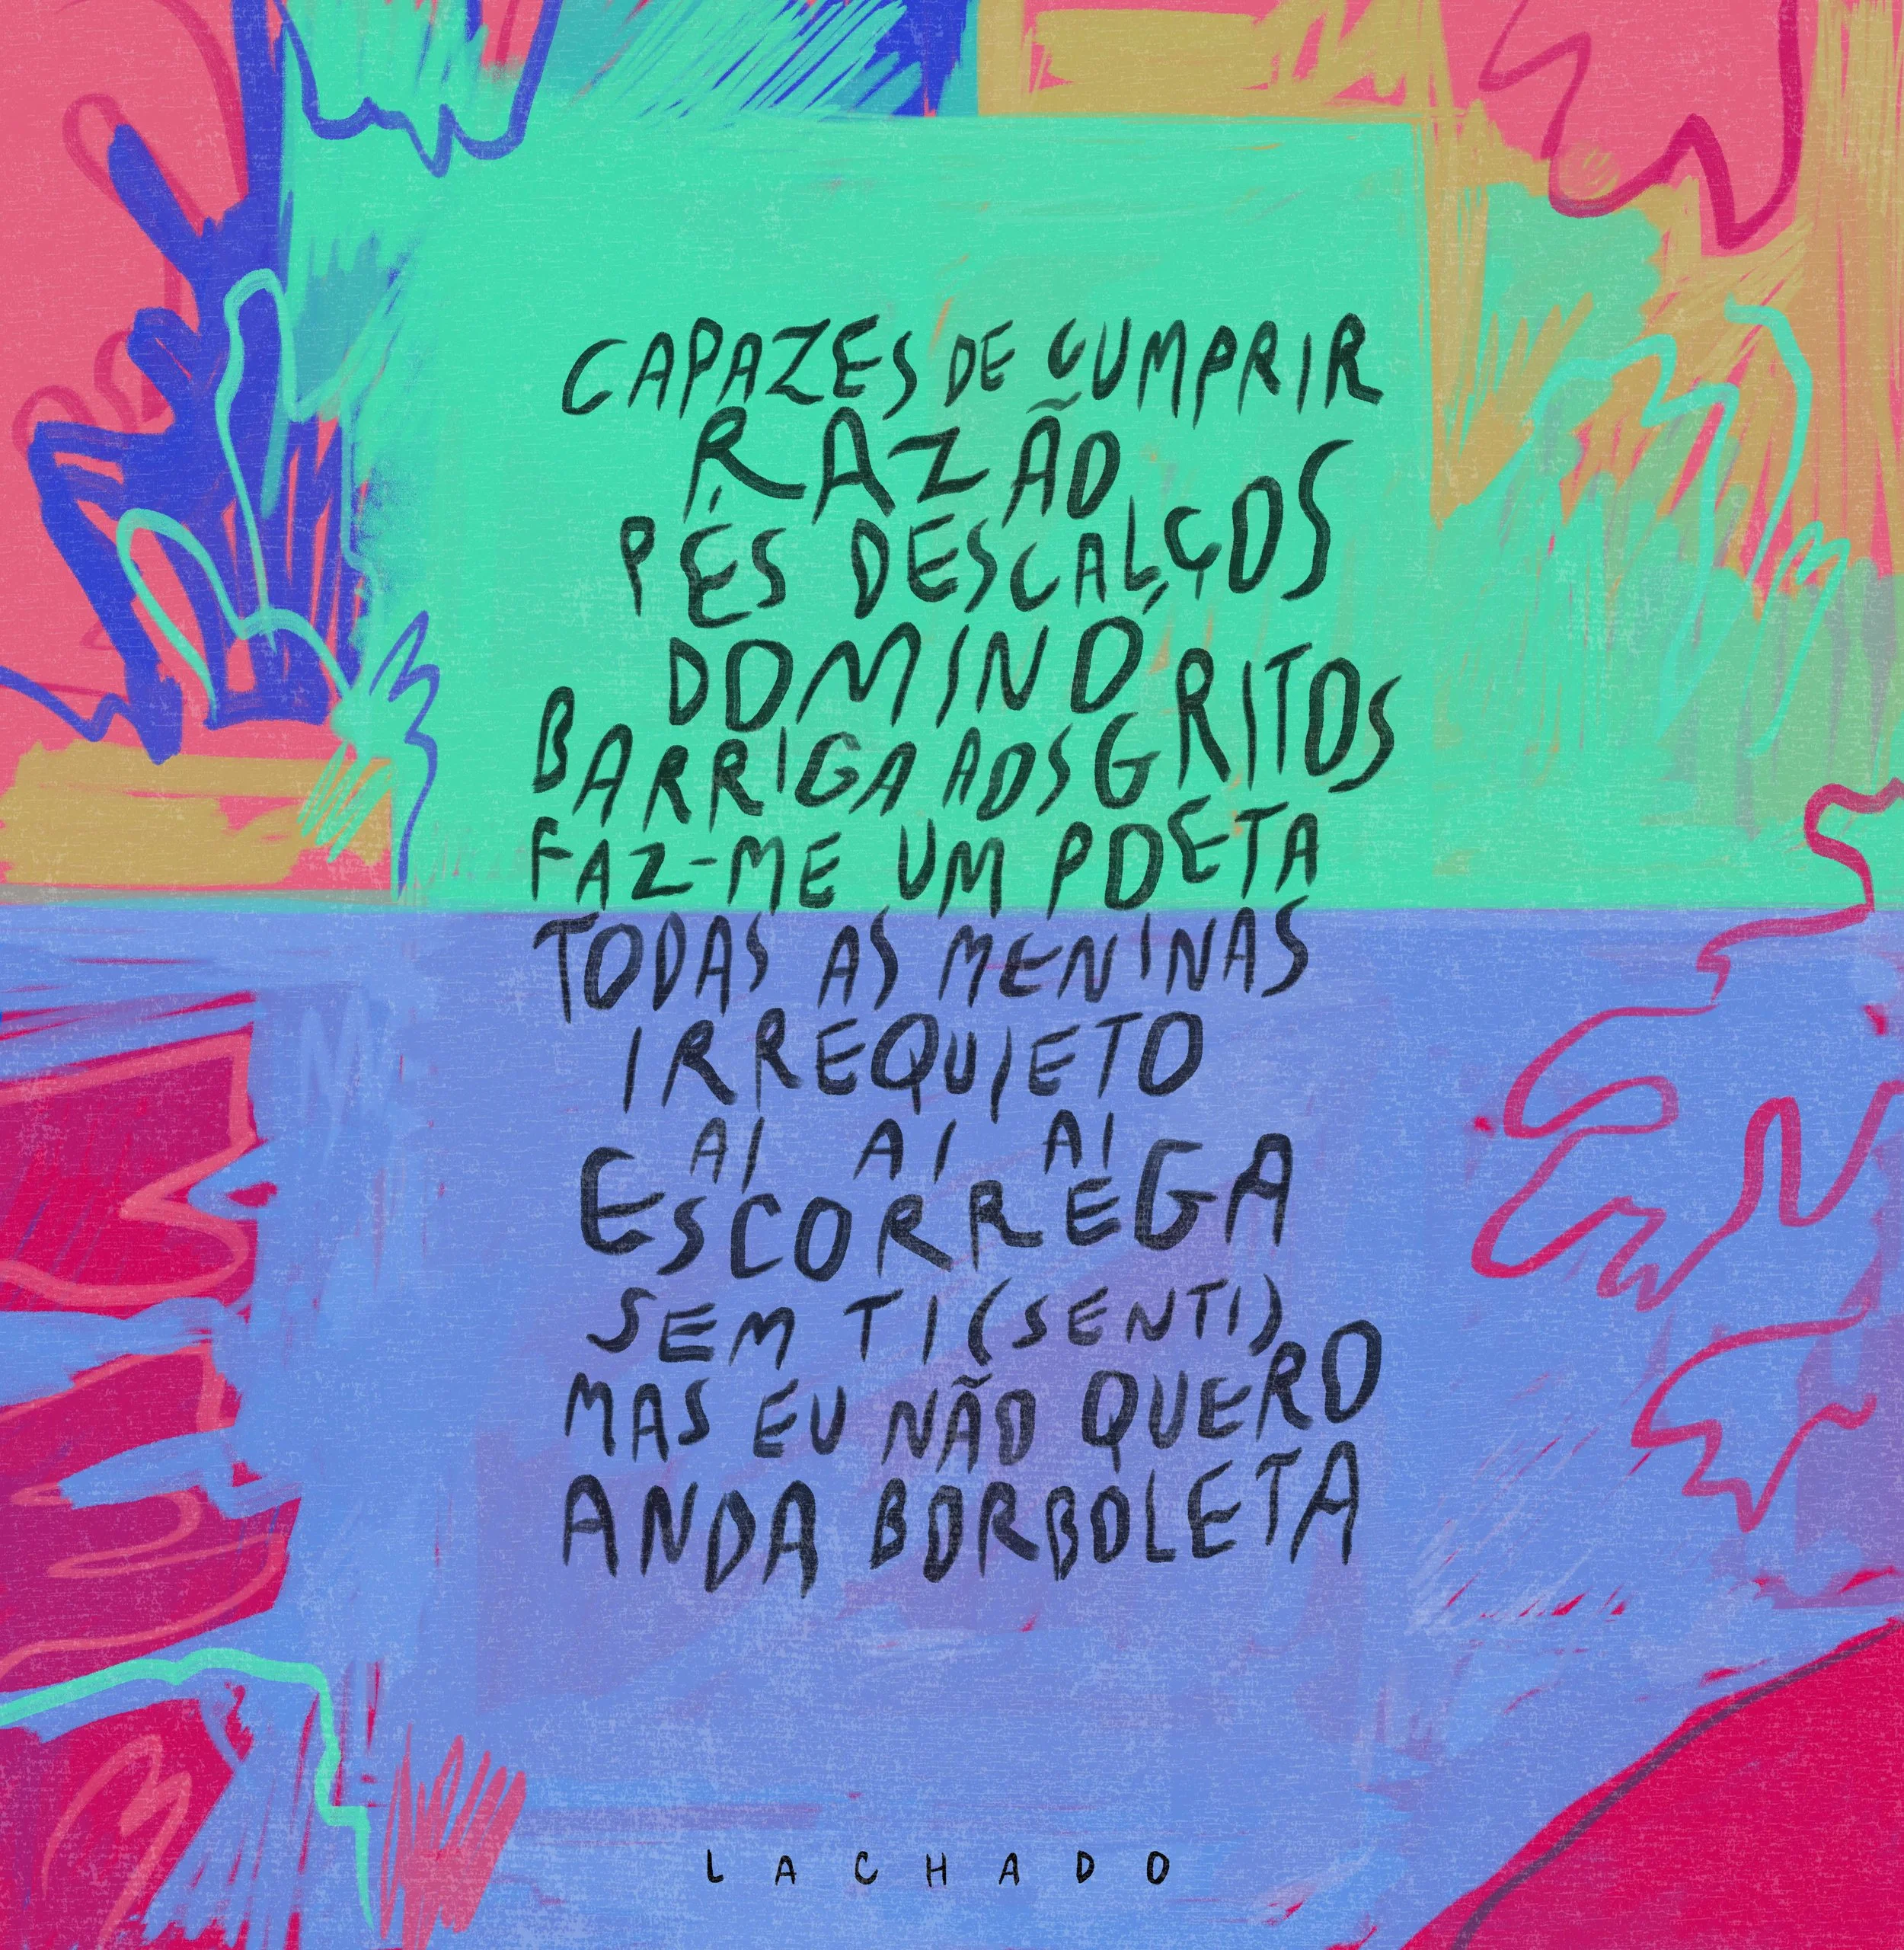 CAPAZES DE CUMPRIR
RAZÃO
PÉS DESCALÇOS
DOMINÓ
BARRIGA AOS GRITOS
FAZ-ME UM POETA
TODAS AS MENINAS
IRREQUIETO
AI AI AI
ESCORREGA
SEM TI (SENTI)
MAS EU NÃO QUERO
ANDA BORBOLETA
LACHADO